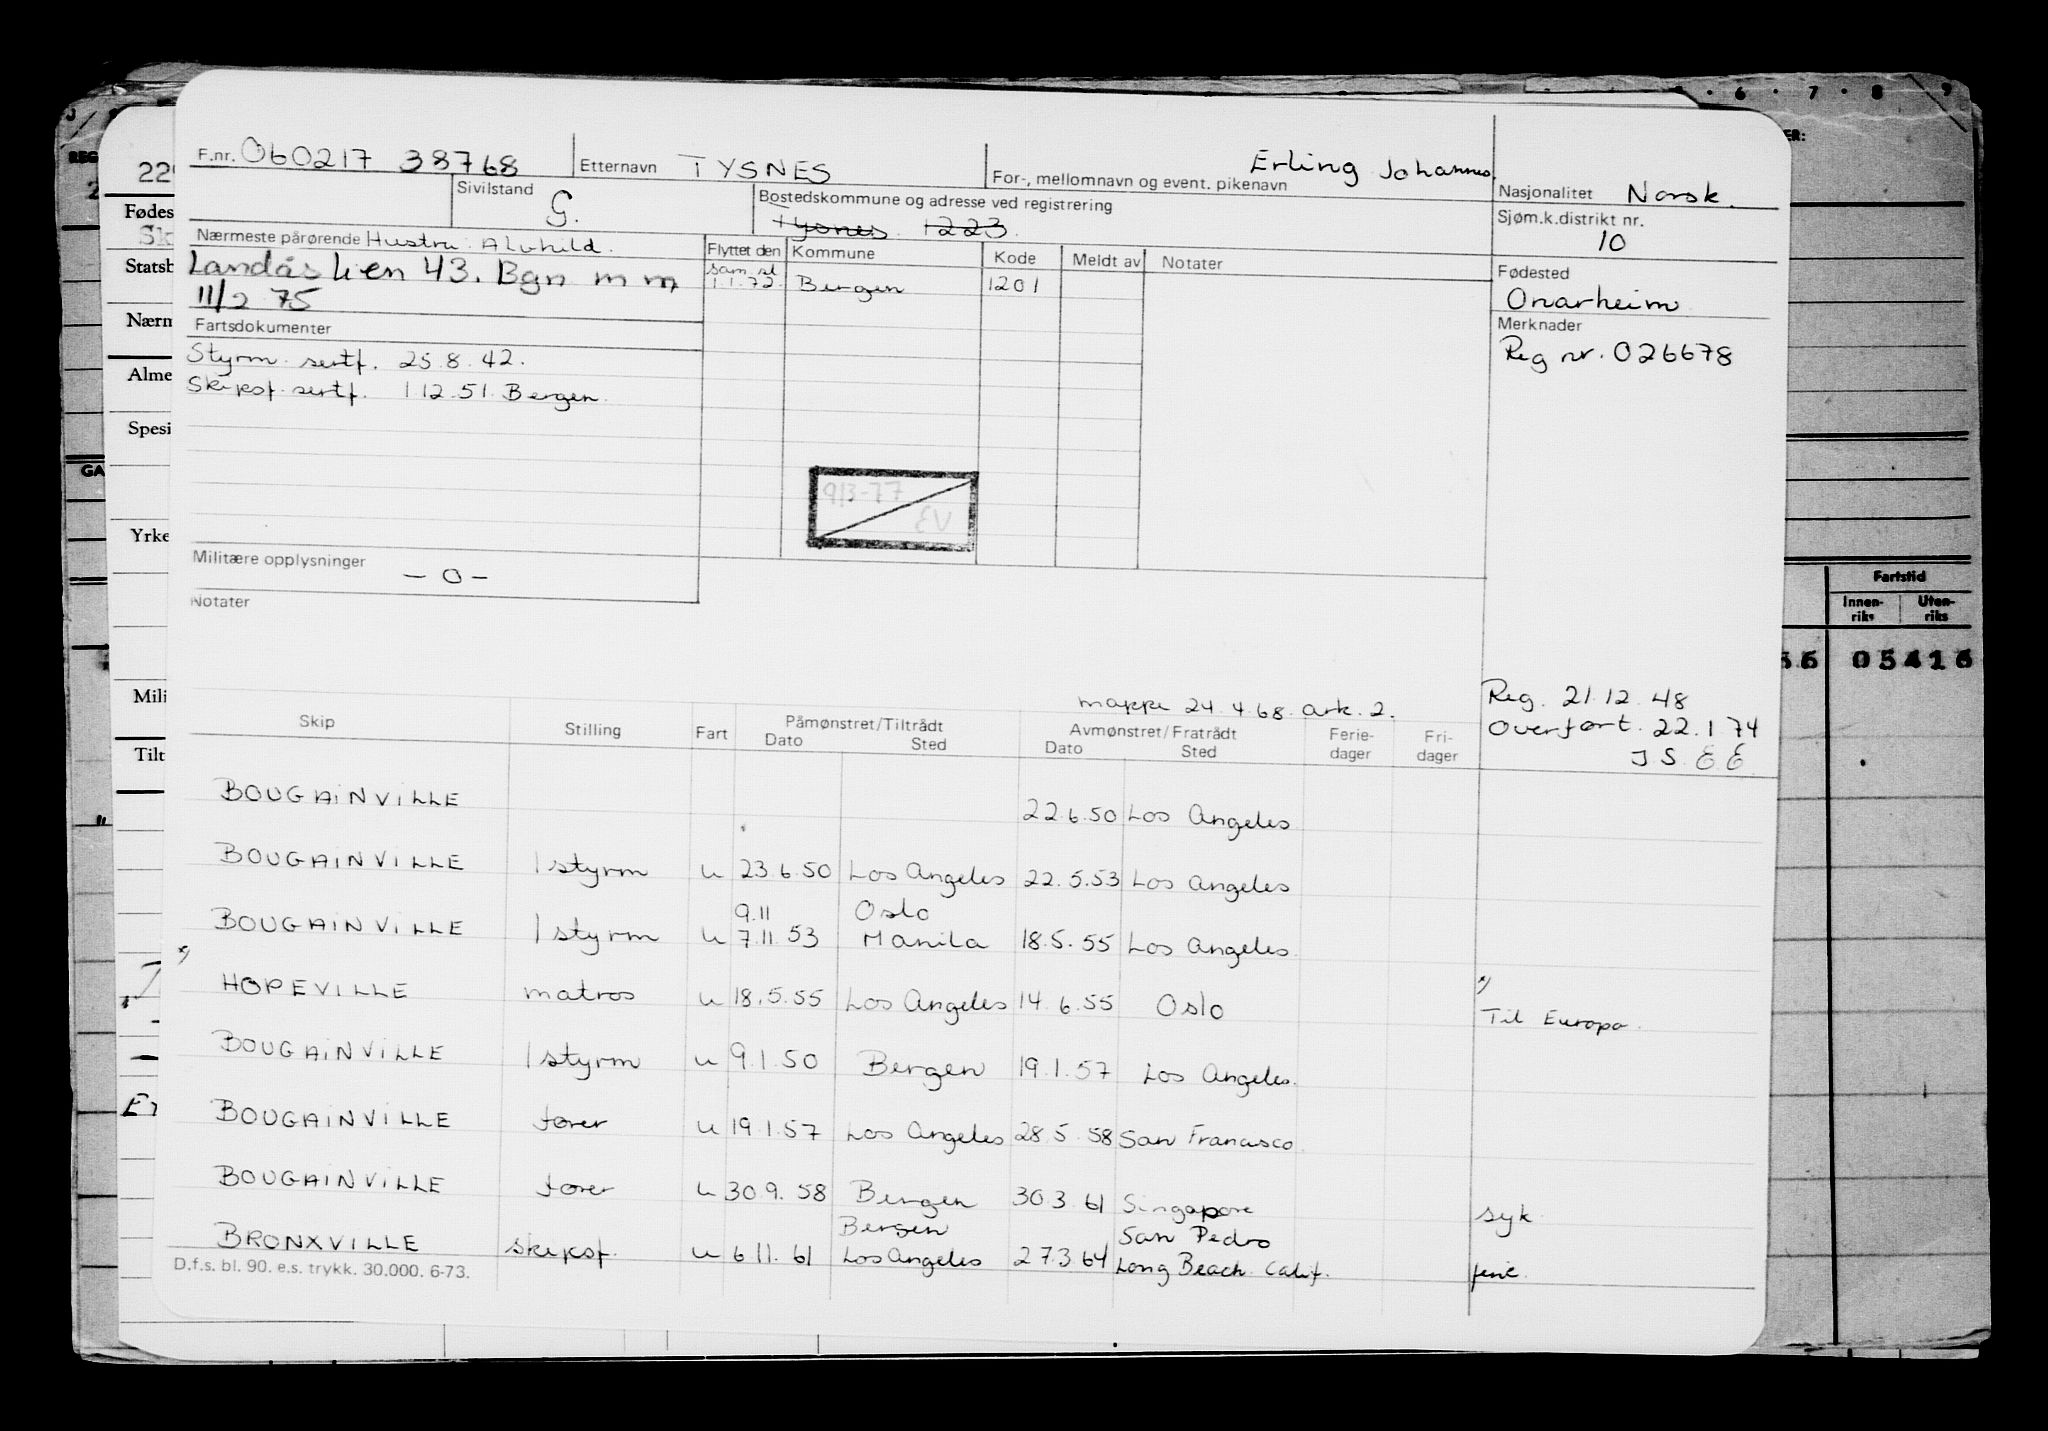 F.nr. 060217 38768 Etternavn TYSNES For-, mellomnavn og event. pikenavn Erling Johannes. Nasjonalitet Norsk.
Sivilstand G. Bostedskommune og adresse ved registrering Tysnes 1223. Sjøm.k.distrikt nr. 10
Nærmeste pårørende Hustru: Alvhild. Flyttet den Kommune Kode Meldt av Notater
Landåslien 43. Bgn m m
11/2 75
1.1.72. Bergen 1201
Fødested
Onarheim
Merknader
Reg nr. 026678
Fartsdokumenter
Styrm. sertf. 25.8.42.
Skipsf. sertf. 1 12.51. Bergen.
9/3-77
EV
Militære opplysninger - 0 -
Notater
mappe 24.4.68. ark. 2.
Reg. 21.12.48
Overført. 22.1.74
J.S. E E
Skip Stilling Fart Påmønstret/Tiltrådt Avmønstret/Fratrådt Ferie- Fri-
Dato Sted Dato Sted dager dager
BOUGAINVILLE 22.6.50 Los Angeles
BOUGAINVILLE 1 styrm u 23.6.50 Los Angeles 22.5.53 Los Angeles
9.11 Oslo
BOUGAINVILLE 1 styrm u 7.11.53 Manila 18.5.55 Los Angeles
HOPEVILLE matros u 18.5.55 Los Angeles 14.6.55 Oslo Til Europa.
BOUGAINVILLE 1 styrm u 9.1.50 Bergen 19.1.57 Los Angeles.
BOUGAINVILLE fører u 19.1.57 Los Angeles 28.5.58 San Francisco.
BOUGAINVILLE fører u 30.9.58 Bergen 30.3.61 Singapore syk.
Bergen San Pedro
BRONXVILLE skipsf. u 6.11.61 Los Angeles 27.3.64 Long Beach. Calif. ferie.
D.f.s. bl. 90. e.s. trykk. 30.000. 6-73.
Fødes
Statsb
Nærm
Alme
Spesi
Yrke
Mili
Tilt
Fartstid
Innen- Uten-
riks riks
05416
6 7 8 9